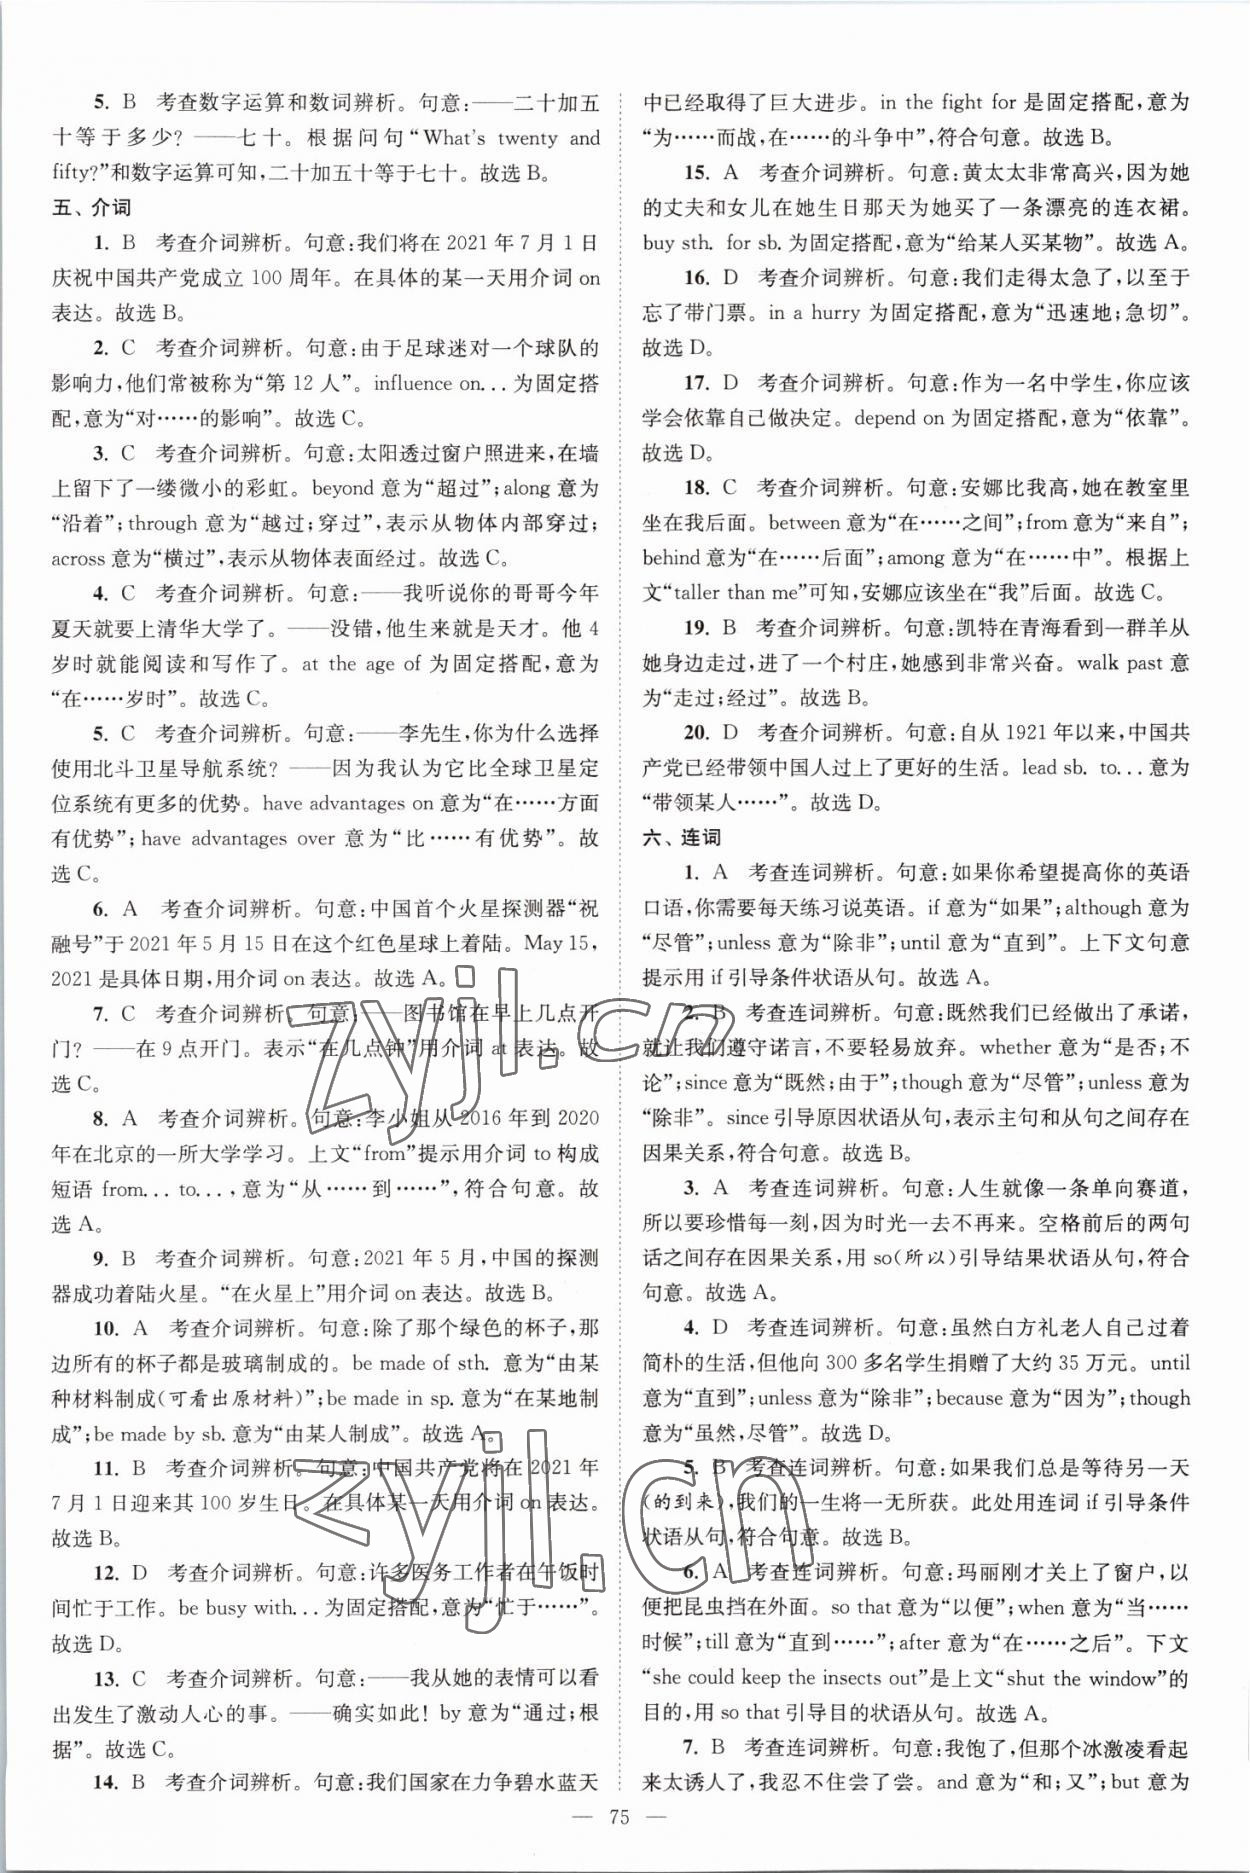 5. B 考查数字运算和数词辨析。句意:——二十加五
十等于多少? ——七十。根据问句“What's twenty and
fifty?”和数字运算可知,二十加五十等于七十。故选 B。
五、介词
1. B 考查介词辨析。句意:我们将在 2021 年 7 月 1 日
庆祝中国共产党成立 100 周年。在具体的某一天用介词 on
表达。故选 B。
2. C 考查介词辨析。句意:由于足球迷对一个球队的
影响力,他们常被称为“第 12 人”。influence on... 为固定搭
配,意为“对……的影响”。故选 C。
3. C 考查介词辨析。句意:太阳透过窗户照进来,在墙
上留下了一缕微小的彩虹。beyond 意为“超过”;along 意为
“沿着”;through 意为“越过;穿过”,表示从物体内部穿过;
across 意为“横过”,表示从物体表面经过。故选 C。
4. C 考查介词辨析。句意:——我听说你的哥哥今年
夏天就要上清华大学了。——没错,他生来就是天才。他 4
岁时就能阅读和写作了。at the age of 为固定搭配,意为
“在……岁时”。故选 C。
5. C 考查介词辨析。句意:——李先生,你为什么选择
使用北斗卫星导航系统? ——因为我认为它比全球卫星定
位系统有更多的优势。have advantages on 意为“在……方面
有优势”;have advantages over 意为“比……有优势”。故
选 C。
6. A 考查介词辨析。句意:中国首个火星探测器“祝
融号”于 2021 年 5 月 15 日在这个红色星球上着陆。May 15,
2021 是具体日期,用介词 on 表达。故选 A。
7. C 考查介词辨析。句意:——图书馆在早上几点开
门? ——在 9 点开门。表示“在几点钟”用介词 at 表达。故
选 C。
8. A 考查介词辨析。句意:李小姐从 2016 年到 2020
年在北京的一所大学学习。上文“from”提示用介词 to 构成
短语 from... to...,意为“从……到……”,符合句意。故
选 A。
9. B 考查介词辨析。句意:2021 年 5 月,中国的探测
器成功着陆火星。“在火星上”用介词 on 表达。故选 B。
10. A 考查介词辨析。句意:除了那个绿色的杯子,那
边所有的杯子都是玻璃制成的。be made of sth. 意为“由某
种材料制成(可看出原材料)”;be made in sp. 意为“在某地制
成”;be made by sb. 意为“由某人制成”。故选 A。
11. B 考查介词辨析。句意:中国共产党将在 2021 年
7 月 1 日迎来其 100 岁生日。在具体某一天用介词 on 表达。
故选 B。
12. D 考查介词辨析。句意:许多医务工作者在午饭时
间忙于工作。be busy with... 为固定搭配,意为“忙于……”。
故选 D。
13. C 考查介词辨析。句意:——我从她的表情可以看
出发生了激动人心的事。——确实如此! by 意为“通过;根
据”。故选 C。
14. B 考查介词辨析。句意:我们国家在力争碧水蓝天
中已经取得了巨大进步。in the fight for 是固定搭配,意为
“为……而战,在……的斗争中”,符合句意。故选 B。
15. A 考查介词辨析。句意:黄太太非常高兴,因为她
的丈夫和女儿在她生日那天为她买了一条漂亮的连衣裙。
buy sth. for sb. 为固定搭配,意为“给某人买某物”。故选 A。
16. D 考查介词辨析。句意:我们走得太急了,以至于
忘了带门票。in a hurry 为固定搭配,意为“迅速地;急切”。
故选 D。
17. D 考查介词辨析。句意:作为一名中学生,你应该
学会依靠自己做决定。depend on 为固定搭配,意为“依靠”。
故选 D。
18. C 考查介词辨析。句意:安娜比我高,她在教室里
坐在我后面。between 意为“在……之间”;from 意为“来自”;
behind 意为“在……后面”;among 意为“在……中”。根据上
文“taller than me”可知,安娜应该坐在“我”后面。故选 C。
19. B 考查介词辨析。句意:凯特在青海看到一群羊从
她身边走过,进了一个村庄,她感到非常兴奋。walk past 意
为“走过;经过”。故选 B。
20. D 考查介词辨析。句意:自从 1921 年以来,中国共
产党已经带领中国人过上了更好的生活。lead sb. to... 意为
“带领某人……”。故选 D。
六、连词
1. A 考查连词辨析。句意:如果你希望提高你的英语
口语,你需要每天练习说英语。if 意为“如果”;although 意为
“尽管”;unless 意为“除非”;until 意为“直到”。上下文句意
提示用 if 引导条件状语从句。故选 A。
2. B 考查连词辨析。句意:既然我们已经做出了承诺,
就让我们遵守诺言,不要轻易放弃。whether 意为“是否;不
论”;since 意为“既然;由于”;though 意为“尽管”;unless 意为
“除非”。since 引导原因状语从句,表示主句和从句之间存在
因果关系,符合句意。故选 B。
3. A 考查连词辨析。句意:人生就像一条单向赛道,
所以要珍惜每一刻,因为时光一去不再来。空格前后的两句
话之间存在因果关系,用 so(所以)引导结果状语从句,符合
句意。故选 A。
4. D 考查连词辨析。句意:虽然白方礼老人自己过着
简朴的生活,但他向 300 多名学生捐赠了大约 35 万元。until
意为“直到”;unless 意为“除非”;because 意为“因为”;though
意为“虽然,尽管”。故选 D。
5. B 考查连词辨析。句意:如果我们总是等待另一天
(的到来),我们的一生将一无所获。此处用连词 if 引导条件
状语从句,符合句意。故选 B。
6. A 考查连词辨析。句意:玛丽刚才关上了窗户,以
便把昆虫挡在外面。so that 意为“以便”;when 意为“当……
时候”;till 意为“直到……”;after 意为“在……之后”。下文
“she could keep the insects out”是上文“shut the window”的
目的,用 so that 引导目的状语从句。故选 A。
7. B 考查连词辨析。句意:我饱了,但那个冰激凌看起
来太诱人了,我忍不住尝了尝。and 意为“和;又”;but 意为
— 75 —
zyjl.cn
zyjl.cn